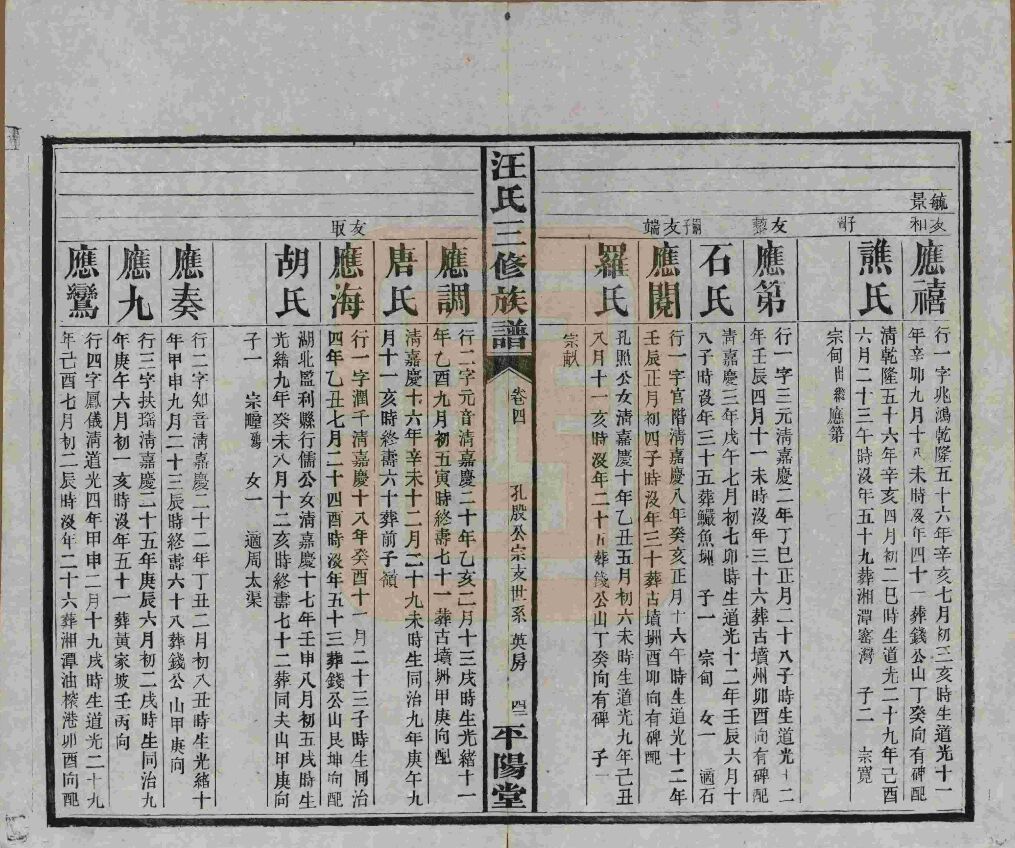 毓景
友和
應禧
行一字兆鴻乾隆五十六年辛亥七月初三亥時生道光十一
年辛卯九月十八未時沒年四十一葬錢公山丁癸向有碑配
譙氏
清乾隆五十六年辛亥四月初二巳時生道光二十九年己酉
六月二十三午時沒年五十九葬湘潭窰灣 子二 宗寬
宗甸出繼應第
友
應第
行一字三元清嘉慶二年丁巳正月二十八子時生道光十二
年壬辰四月十一未時沒年三十六葬古墳州卯酉向有碑配
石氏
清嘉慶三年戊午七月初七卯時生道光十二年壬辰六月十
八子時沒年三十五葬鱺魚㘭 子一 宗甸 女一 適石
友端
應閱
行一字官階清嘉慶八年癸亥正月十六午時生道光十二年
壬辰正月初四子時沒年三十葬古墳州酉卯向有碑配
羅氏
孔照公女清嘉慶十年乙丑五月初六未時生道光九年己丑
八月十一亥時沒年二十五葬錢公山丁癸向有碑 子一
宗猷
汪氏三修族譜
卷四
孔殷公宗支世系 英房
平陽堂
應調
行二字元音清嘉慶二十年乙亥二月十三戌時生光緒十一
年乙酉九月初五寅時終壽七十一葬古墳州甲庚向配
唐氏
清嘉慶十六年辛未十二月二十九未時生同治九年庚午九
月十一亥時終壽六十葬前子嶺
友取
應海
行一字潤千清嘉慶十八年癸酉十一月二十三子時生同治
四年乙丑七月二十四酉時沒年五十三葬錢公山艮坤向配
胡氏
湖北監利縣行儒公女清嘉慶十七年壬申八月初五戌時生
光緒九年癸未八月十二亥時終壽七十二葬同夫山甲庚向
子一 宗疃 女一 適周太渠
應奏
行二字知音清嘉慶二十二年丁丑二月初八丑時生光緒十
年甲申九月二十三辰時終壽六十八葬錢公山甲庚向
應九
行三字扶瑤清嘉慶二十五年庚辰六月初二戌時生同治九
年庚午六月初一亥時沒年五十一葬黃家坡壬丙向
應鸞
行四字鳳儀清道光四年甲申二月十九戌時生道光二十九
年己酉七月初二辰時沒年二十六葬湘潭油榨港卯酉向配